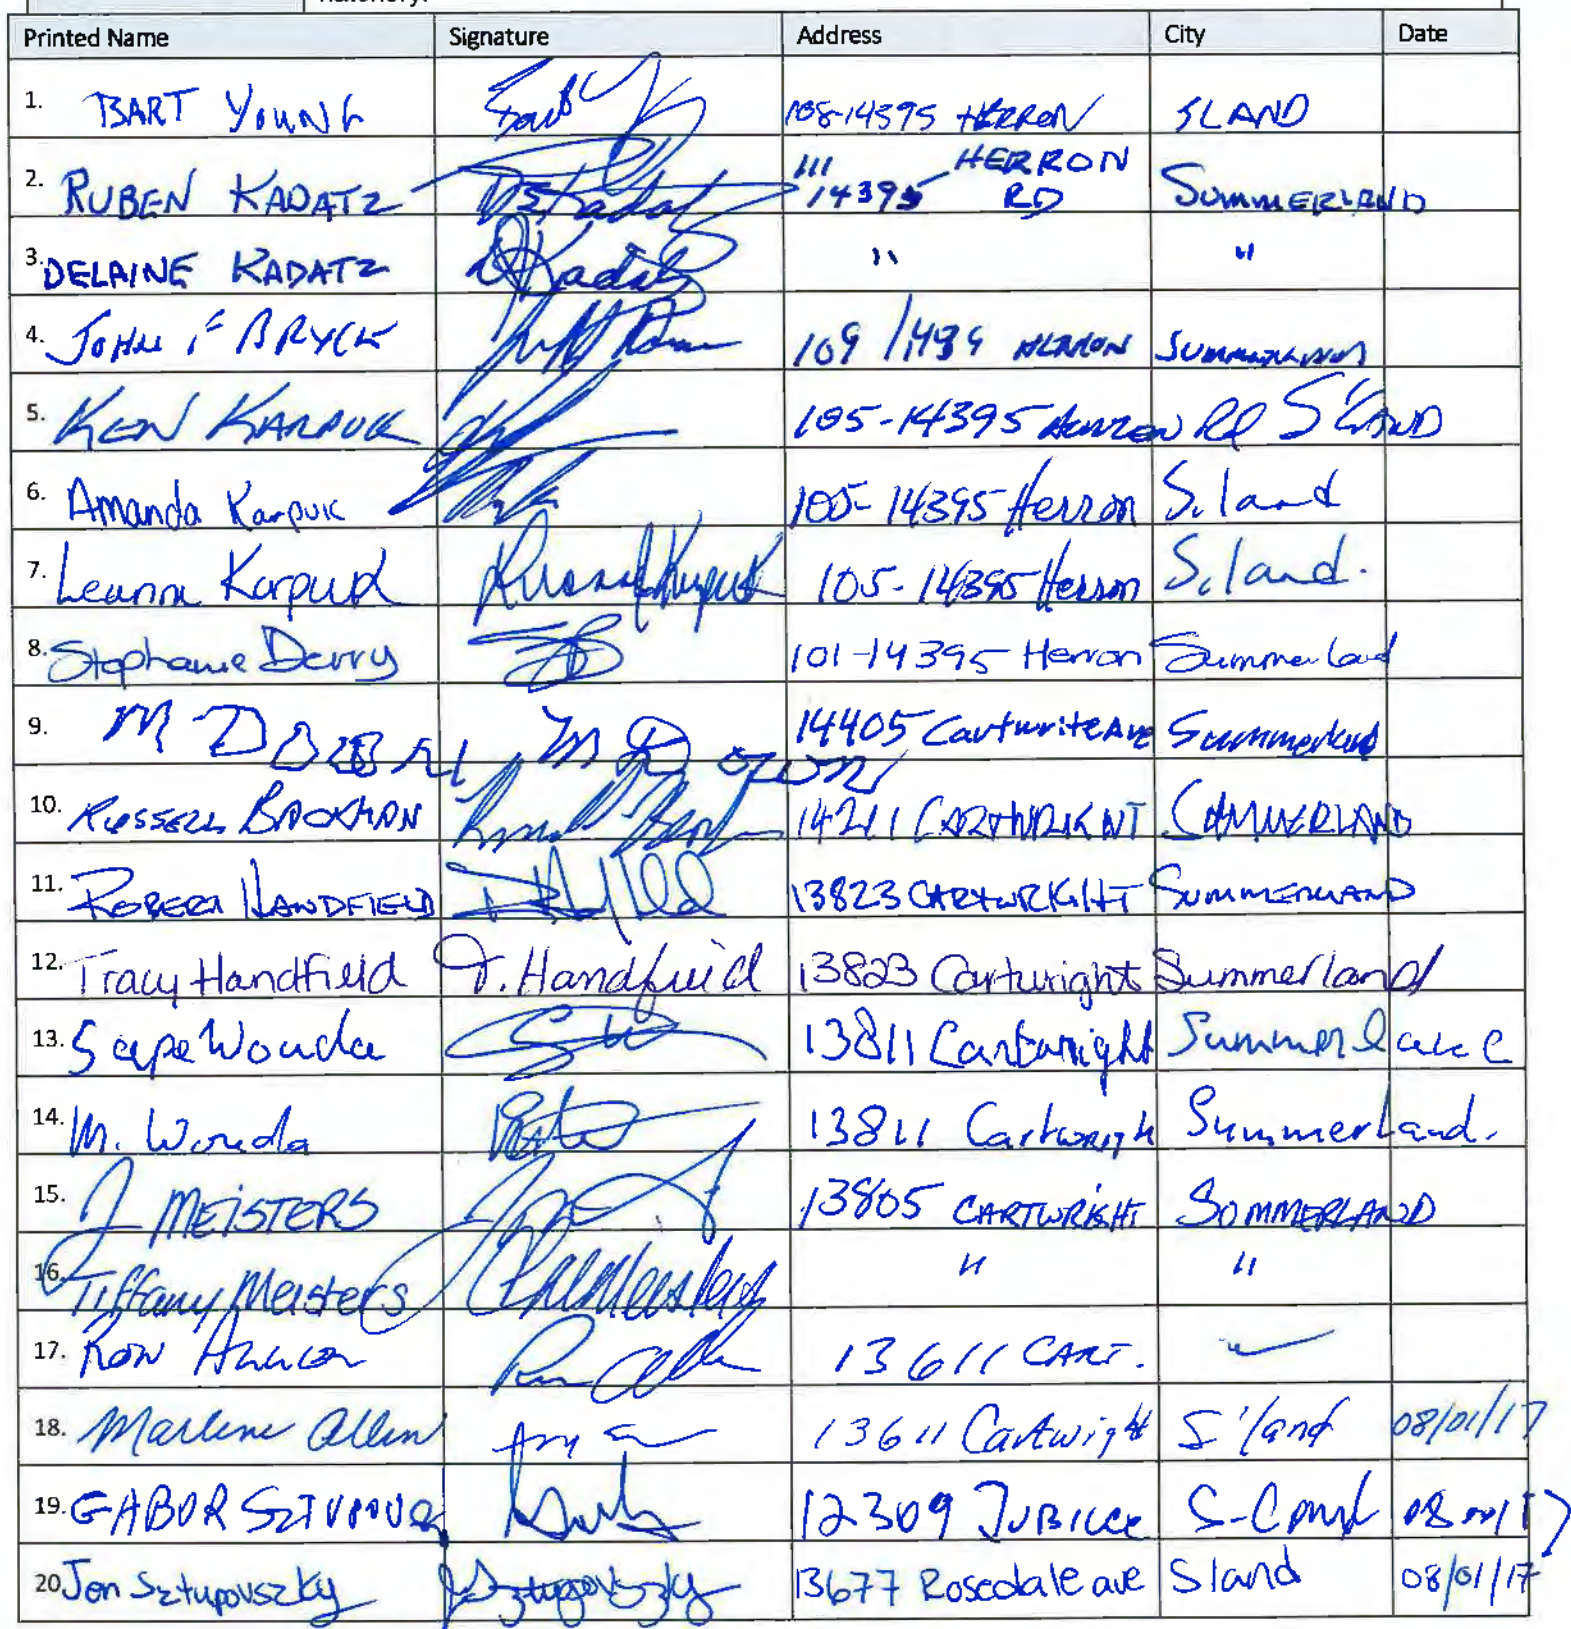 Printed Name Signature Address City Date
1. BART YOUNG 108-14395 HERRON SLAND
2. RUBEN KADATZ 111 14395 HERRON RD SUMMERLAND
3. DELAINE KADATZ DKadatz " "
4. JOHN F BRYCK 109 HERRON SUMMERLAND
5. KEN KARPUK 105-14395 HERRON Rd S'LAND
6. Amanda Karpuk 105-14395 Herron S.land
7. Leanne Karpuk 105-14395 Herron S.land.
8. Stephanie Derry 101-14395 Herron Summerland
9. M M D 14405 Cartwrite Ave Summerland
10. RUSSELL 14211 SUMMERLAND
11. ROBERT HANDFIELD 13823 CARTWRIGHT SUMMERLAND
12. Tracy Handfield T. Handfield 13823 Cartwright Summerland
13. Sape Wouda 13811 Cartwright
14. M. Wouda 13811 Cartwrigh Summerland.
15. J MEISTERS 13805 CARTWRIGHT SOMMERLAND
16. Tiffany Meisters " "
17. RON 13611 CART.
18. Marlene Allen 13611 Cartwright S'land 08/01/17
19. GABOR 12309 JUBILEE
20 Jen Sztupovszky J Sztupovszky 13677 Rosedale ave Sland 08/01/17